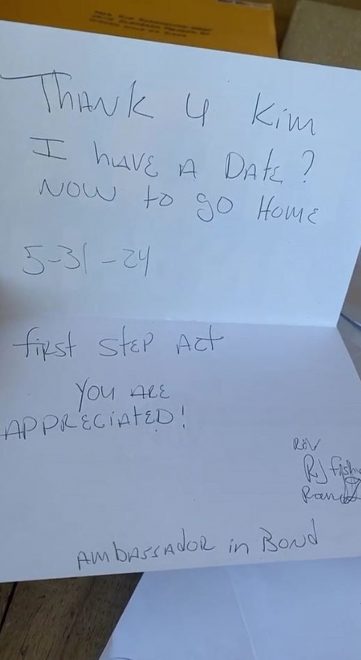 THANK 4 Kim
I HAVE A DATE?
NOW to go HOME
5-31-24
first STEP ACT
YOU ARE
APPRECIATED!
REV
RJ
AMBASSADOR in BOND